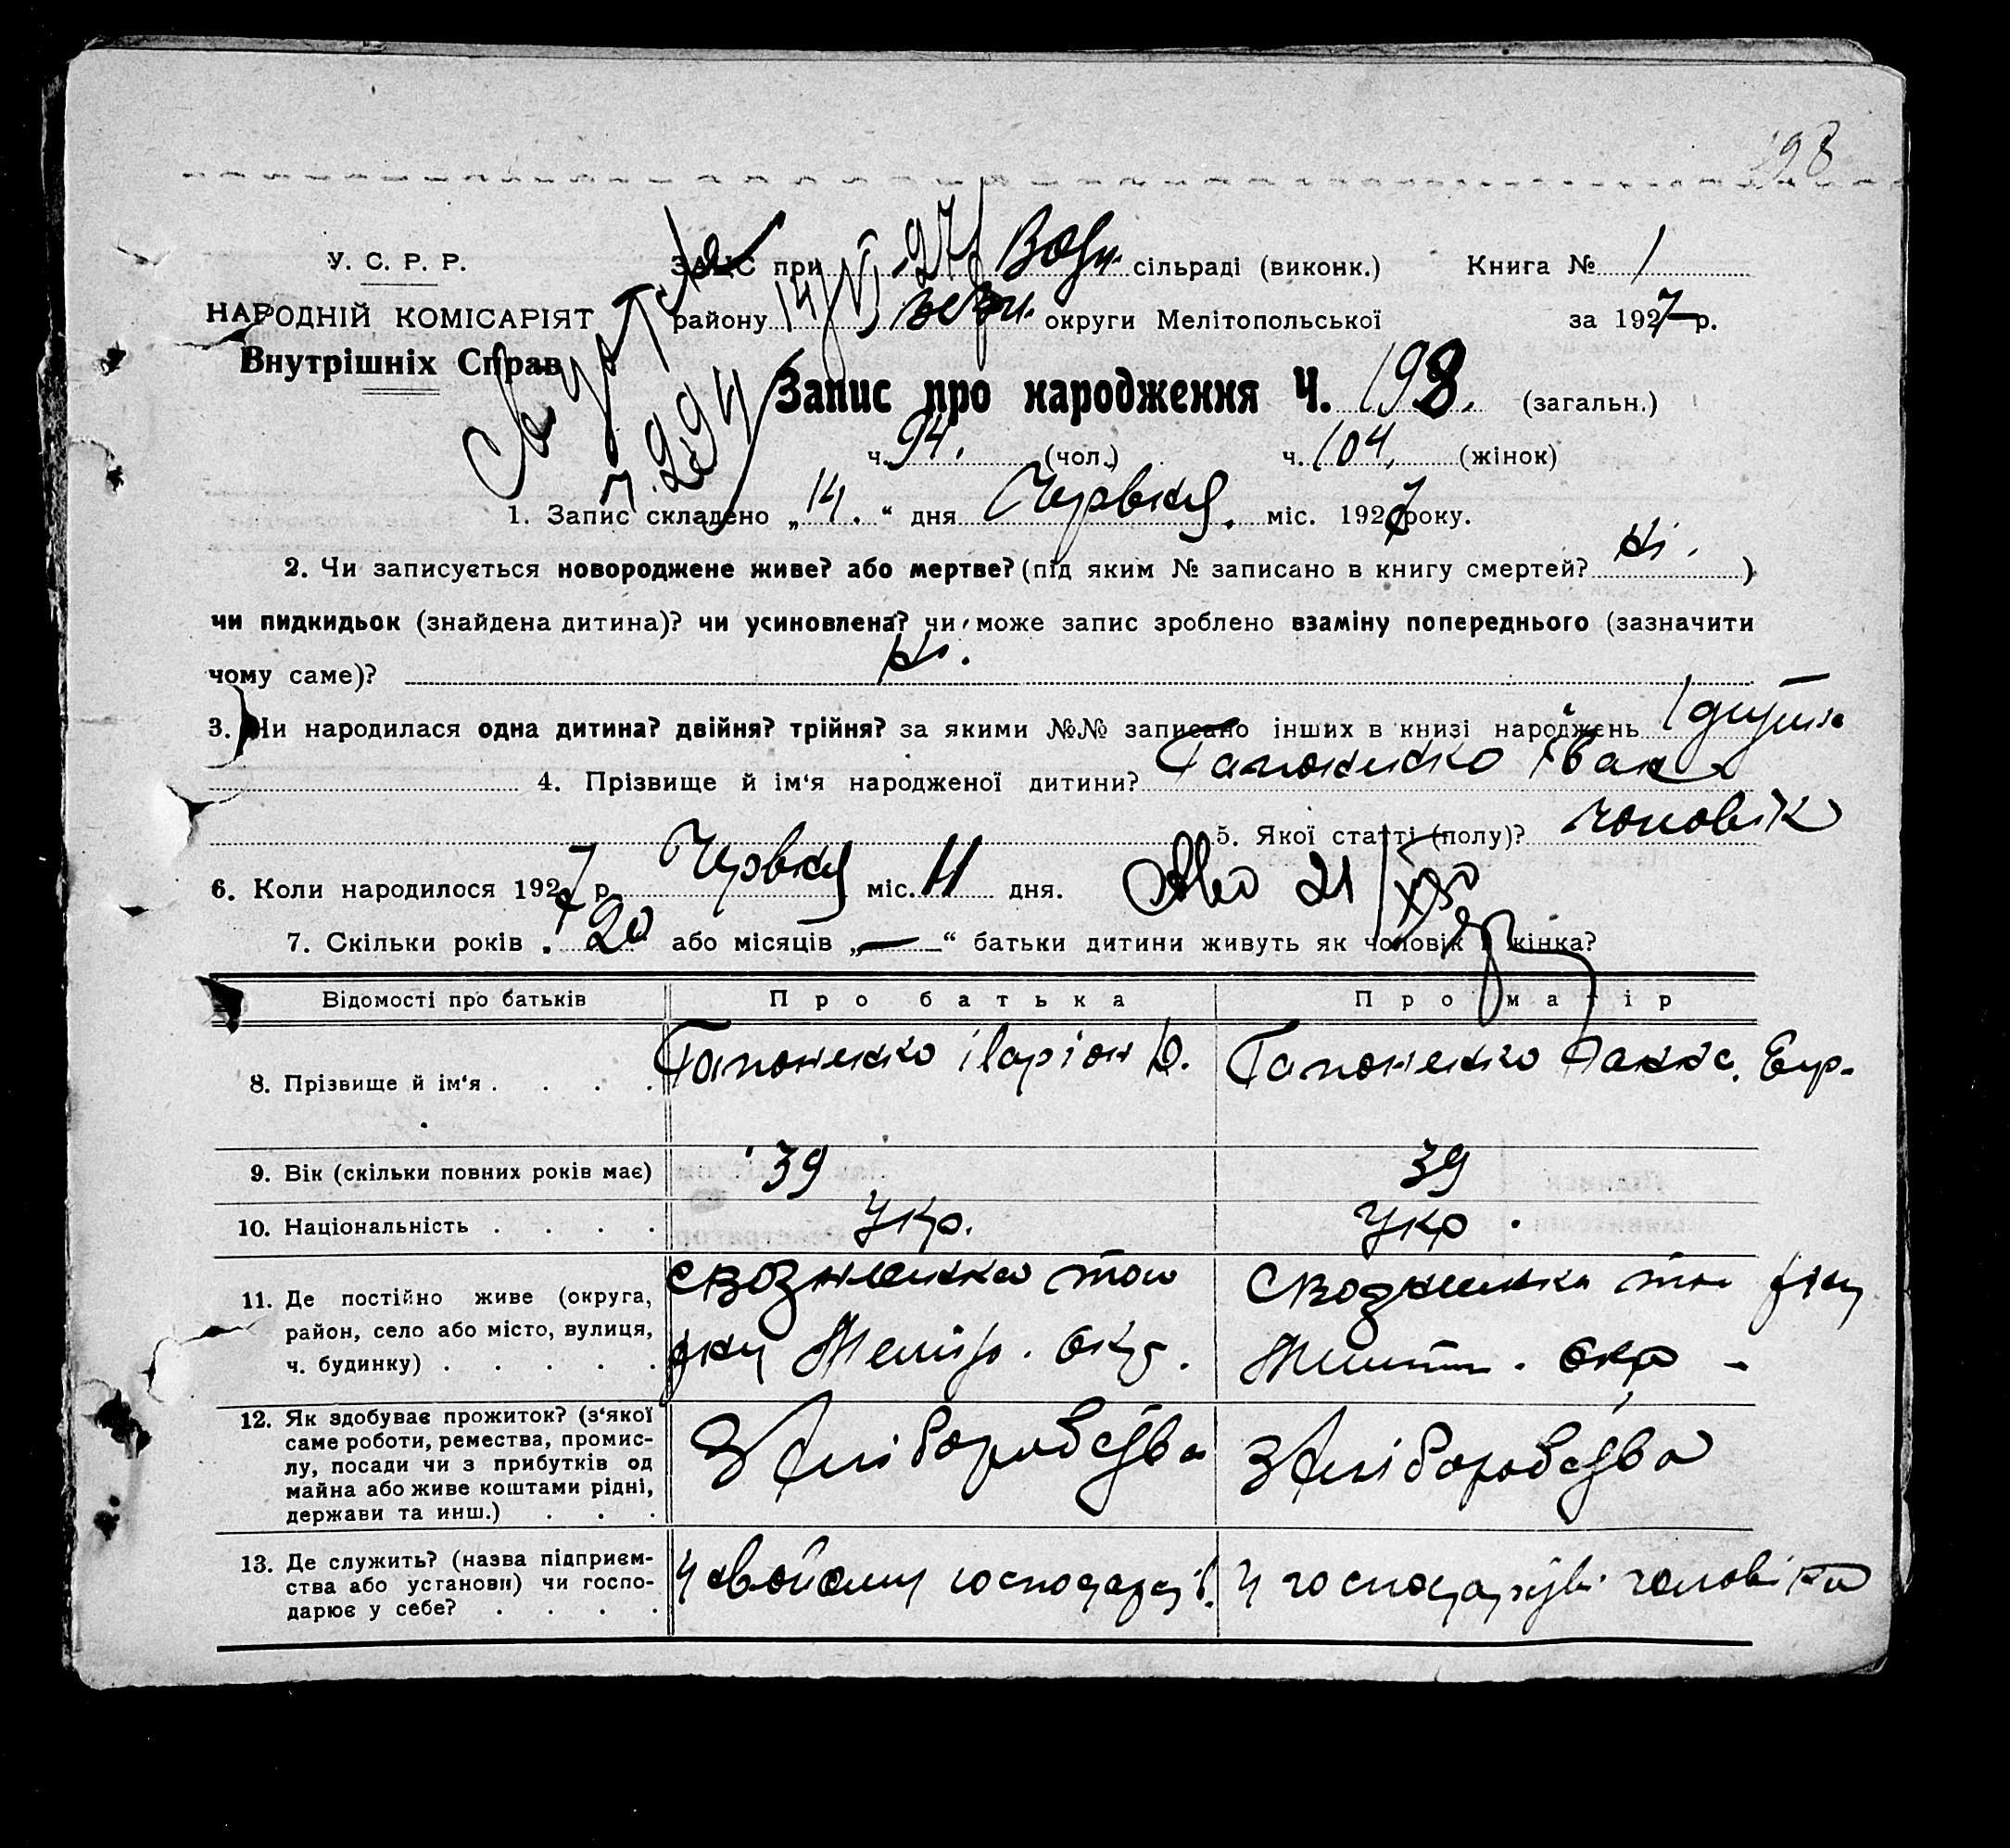 198
У. С. Р. Р.
НАРОДНІЙ КОМІСАРІЯТ
Внутрішніх Справ
ЗАПС при Возн. сільраді (виконк.) Книга № 1
району округи Мелітопольської за 1927 р.
14/VI 27
Запис про народження Ч. 198. (загальн.)
ч. 94. (чол.) ч. 104. (жінок)
1. Запис складено „14.“ дня Червня. міс. 1927 року.
2. Чи записується новороджене живе? або мертве? (під яким № записано в книгу смертей? Ні.)
чи пидкидьок (знайдена дитина)? чи усиновлена? чи може запис зроблено взаміну попереднього (зазначити
чому саме)? Ні.
3. Чи народилася одна дитина? двійня? трійня? за якими №№ записано інших в книзі народжень 1
4. Прізвище й ім‘я народженої дитини? Гапоненко Іван
5. Якої статті (полу)? чоловік
6. Коли народилося 1927 р. Червня міс. 11 дня.
7. Скільки років „20“ або місяців „—“ батьки дитини живуть як чоловік й жінка?
Відомості про батьків Про батька Про матір
8. Прізвище й ім‘я . . . . Гапоненко Іларіон Гапоненко
9. Вік (скільки повних років має) 39 39
10. Національність . . . . Укр. Укр.
11. Де постійно живе (округа,
район, село або місто, вулиця,
ч. будинку) . . . . .
с Вознесенка того ж Меліт. окр. с Вознесенка того ж Меліт. окр
12. Як здобуває прожиток? (з‘якої
саме роботи, ремества, промис-
лу, посади чи з прибутків од
майна або живе коштами рідні,
держави та инш.) . . .
З хліборобства З хліборобства
13. Де служить? (назва підприєм-
ства або установи) чи госпо-
дарює у себе? . . . .
У свойому У господарстві чоловіка